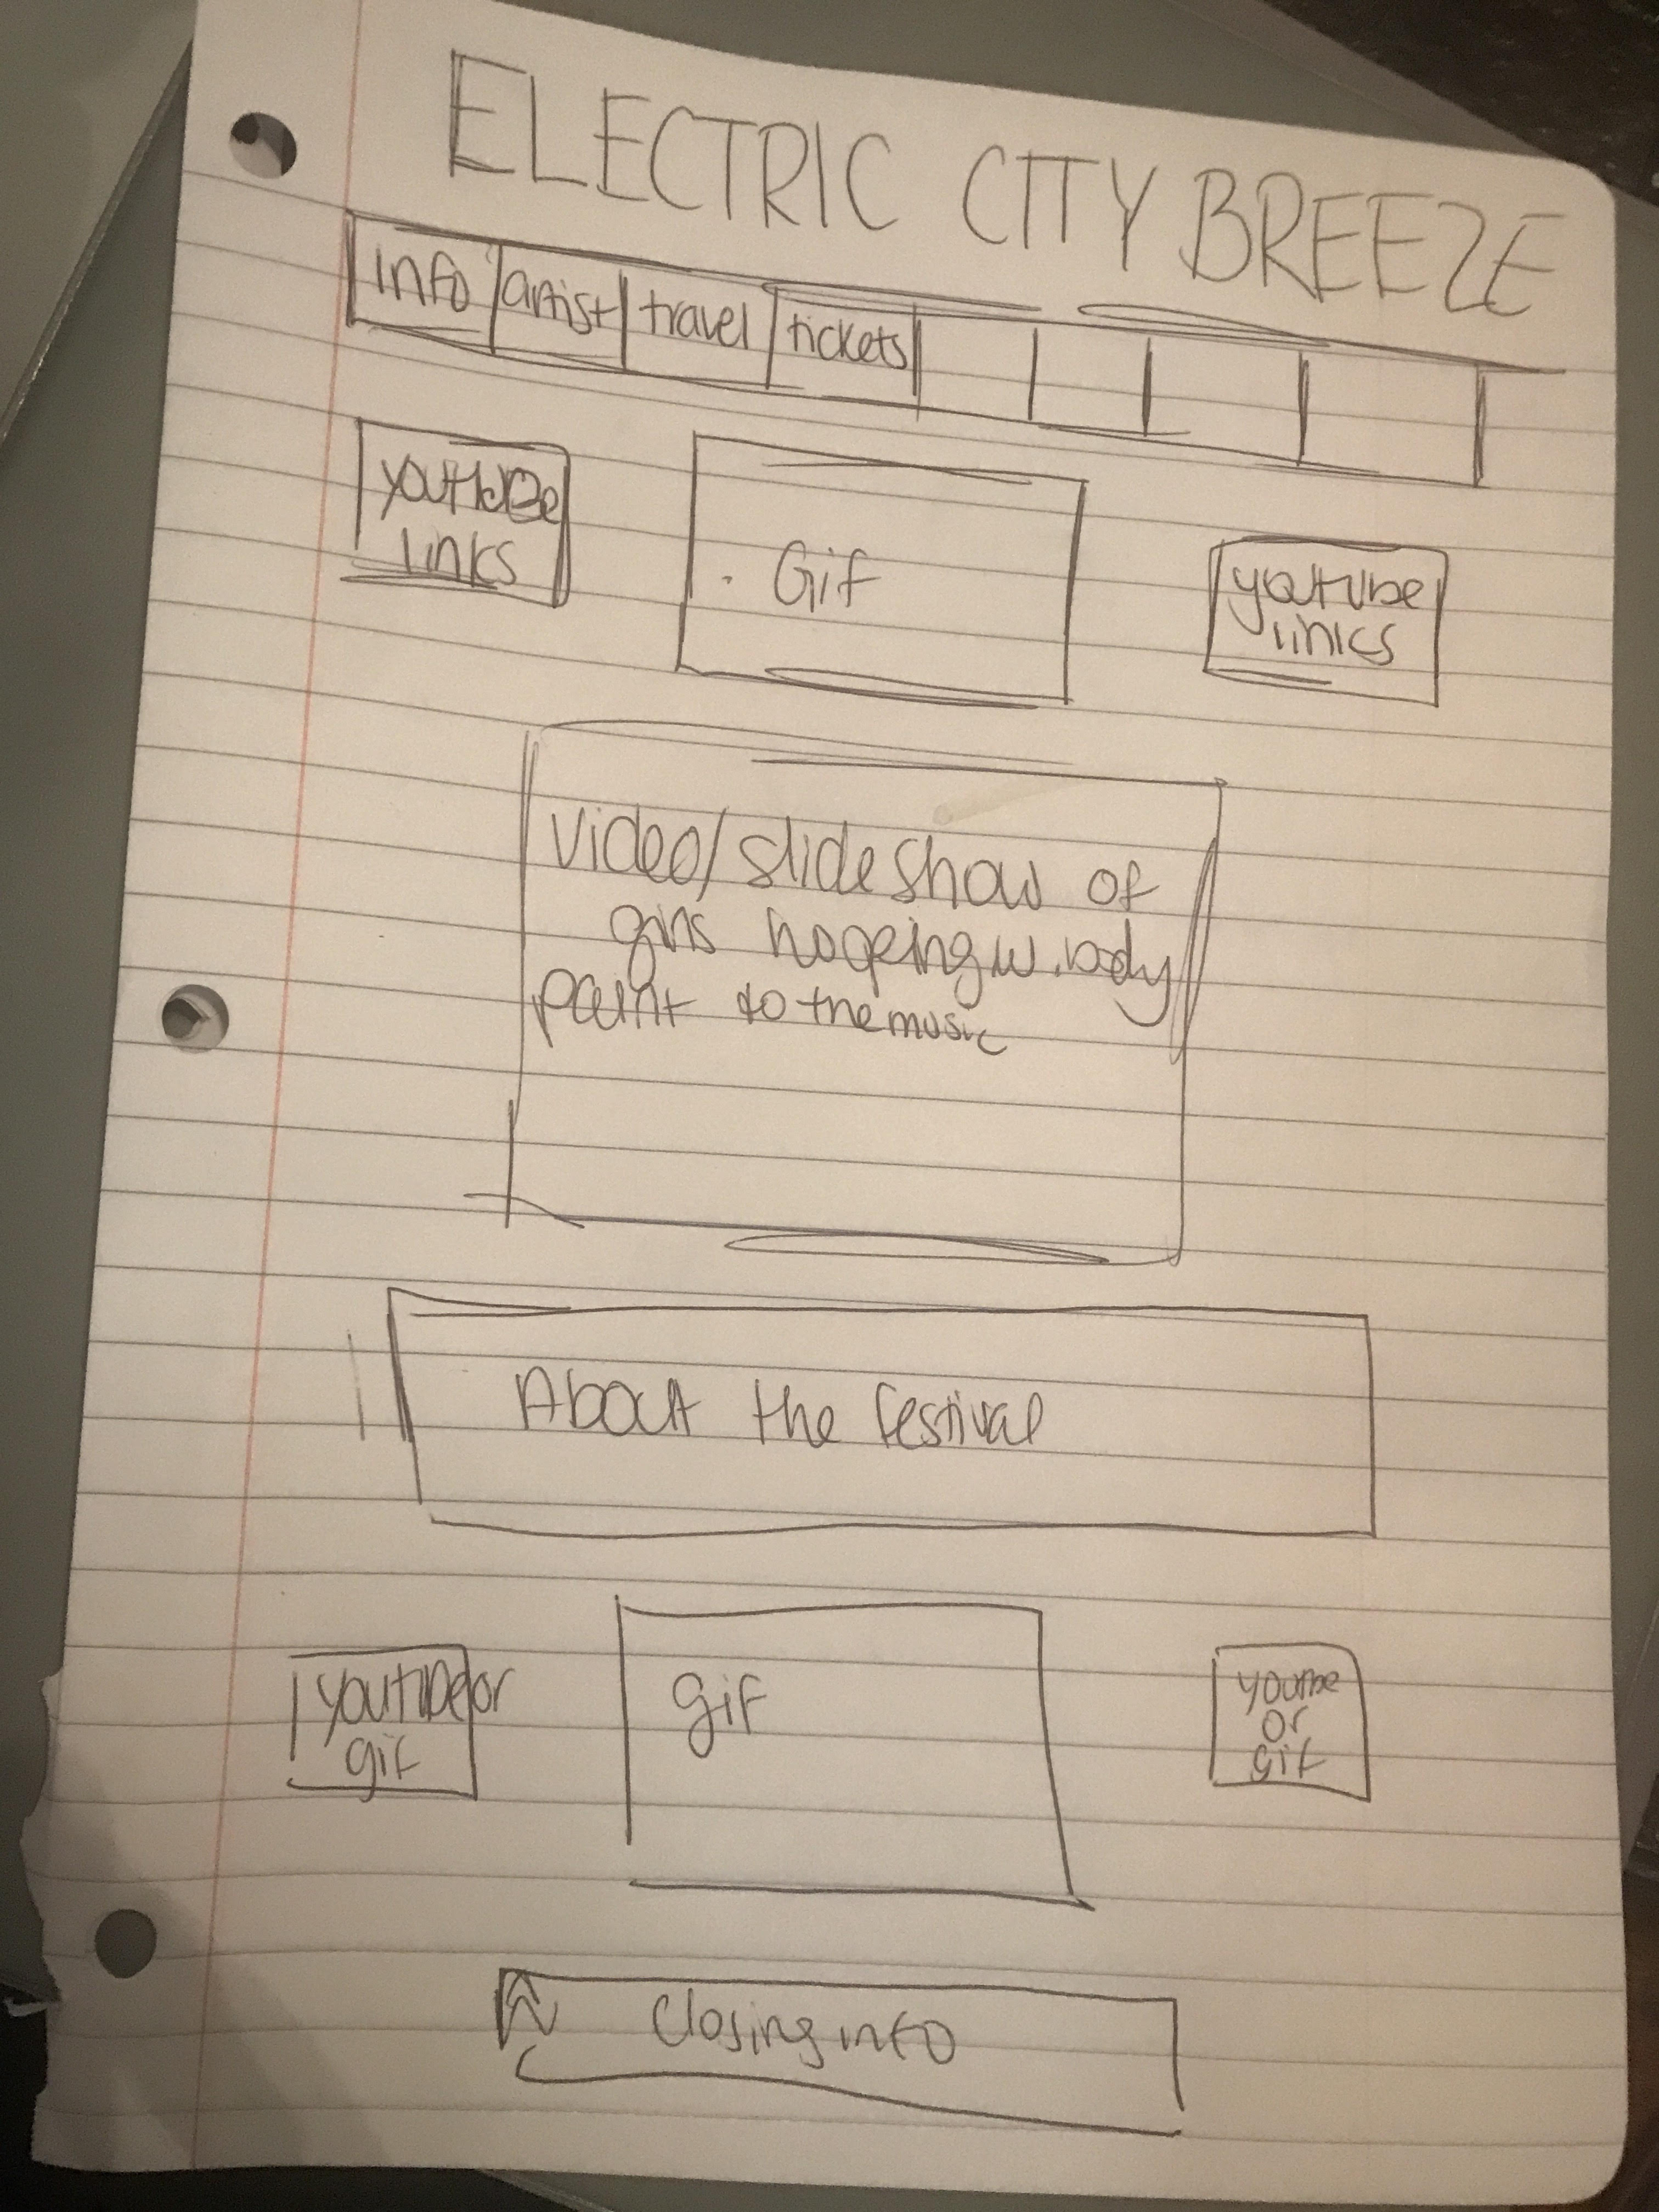 ELECTRIC CITY BREEZE
info artist travel tickets
youtube
links
Gif
youtube
links
Video/slideshow of
girls hooping w. body
paint to the music
About the festival
youtube or
gif
gif
youtube
or
gif
Closing info